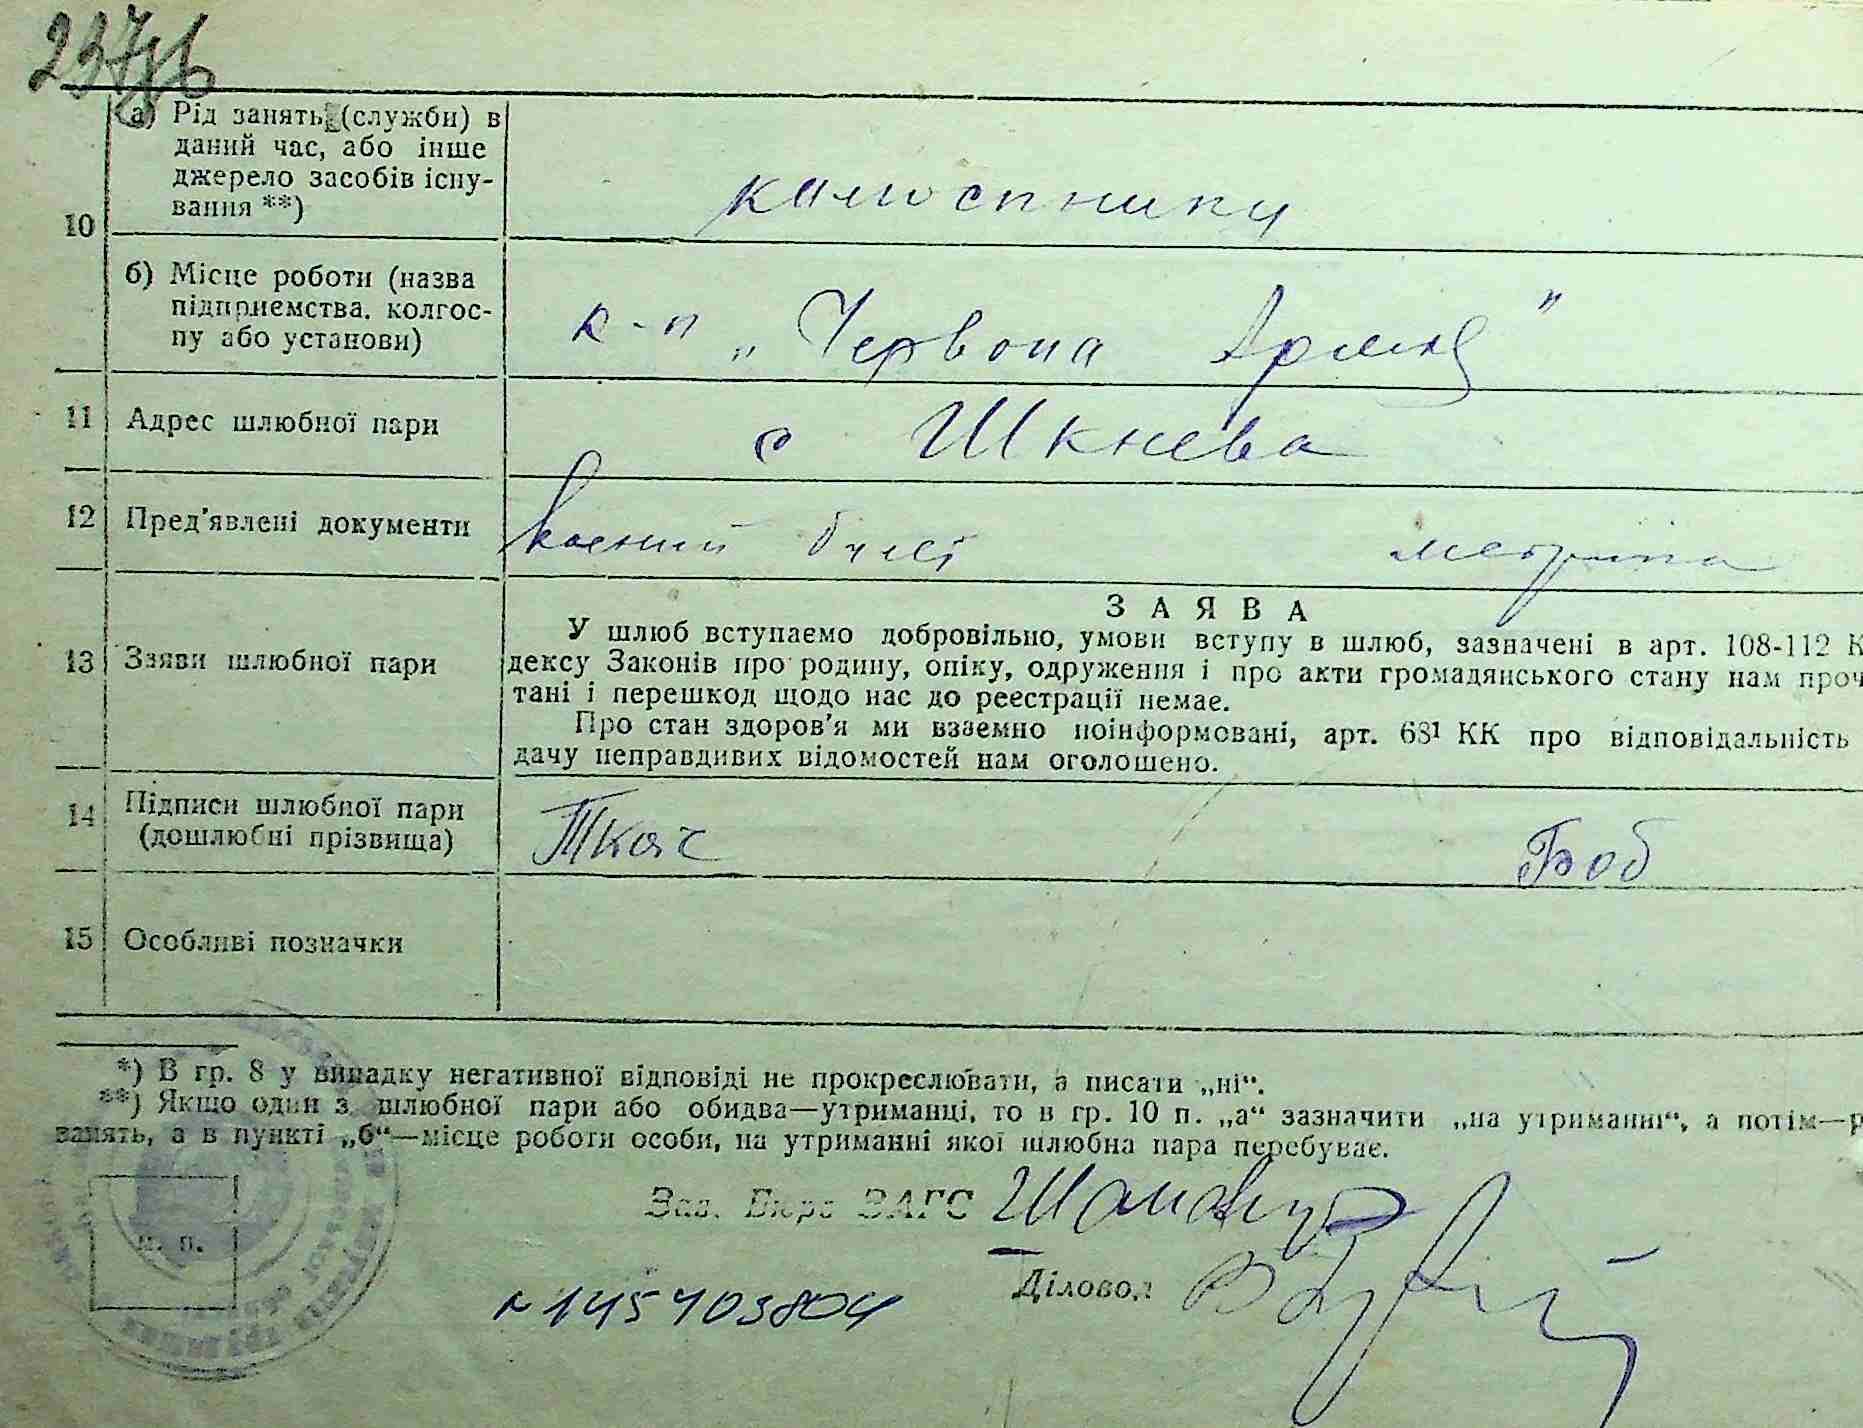 237зб
а) Рід занять (служби) в
даний час, або інше
джерело засобів існу-
вання **)
10
колгоспники
б) Місце роботи (назва
підприємства. колгос-
пу або установи)
к-п „Червона Армія"
11 Адрес шлюбної пари
с Шкнева
12 Пред'явлені документи
Воєнний білєт метріка
13 Заяви шлюбної пари
ЗАЯВА
У шлюб вступаємо добровільно, умови вступу в шлюб, зазначені в арт. 108-112 К
дексу Законів про родину, опіку, одруження і про акти громадянського стану нам проч
тані і перешкод щодо нас до реєстрації немає.
Про стан здоров'я ми взаємно поінформовані, арт. 68¹ КК про відповідальність
дачу неправдивих відомостей нам оголошено.
14 Підписи шлюбної пари
(дошлюбні прізвища)
Ткач Боб
15 Особливі позначки
*) В гр. 8 у випадку негативної відповіді не прокреслювати, а писати „ні“.
**) Якщо один з шлюбної пари або обидва—утриманці, то в гр. 10 п. „а“ зазначити „на утриманні“, а потім—р
занять, а в пункті „б“—місце роботи особи, на утриманні якої шлюбна пара перебуває.
Зав. Бюро ЗАГС
м. п.
Діловод
№ 145403804